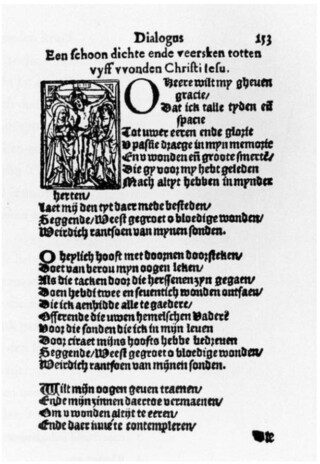 Dialogus 153
Een schoon dichte ende veersken totten
vyff vvonden Christi Iesu.
O Heere wilt my gheuen
gracie/
Dat ick talle tyden eñ
spacie
Tot uwer eeren ende glorie
U passie draege in myn memorie
En u wonden eñ groote smerte/
Die gy voor my hebt geleden
Mach altyt hebben in mynder
herten/
Laet mij den tyt daer mede besteden/
Seggende/Weest gegroet o bloedige wonden/
Weirdich rantsoen van mynen sonden.
O heylich hooft met doornen doorsteken/
Doet van berou myn oogen leken/
Als die tacken door die herssenen zyn gegaen/
Doen hebdi twee en seuentich wonden ontfaen/
Die ick aenbidde alle te gaedere/
Offerende die uwen hemelschen Vader/
Voor die sonden die ick in mijn leuen
Door ciraet mijns hoofts hebbe bedreuen
Seggende/Weest gegroet o bloedige wonden/
Weirdich rantsoen van mijnen sonden.
Wilt mijn oogen geuen traenen/
Ende mijn zinnen daertoe vermaenen/
Om u wonden altijt te eeren/
Ende daer in te contempleren/